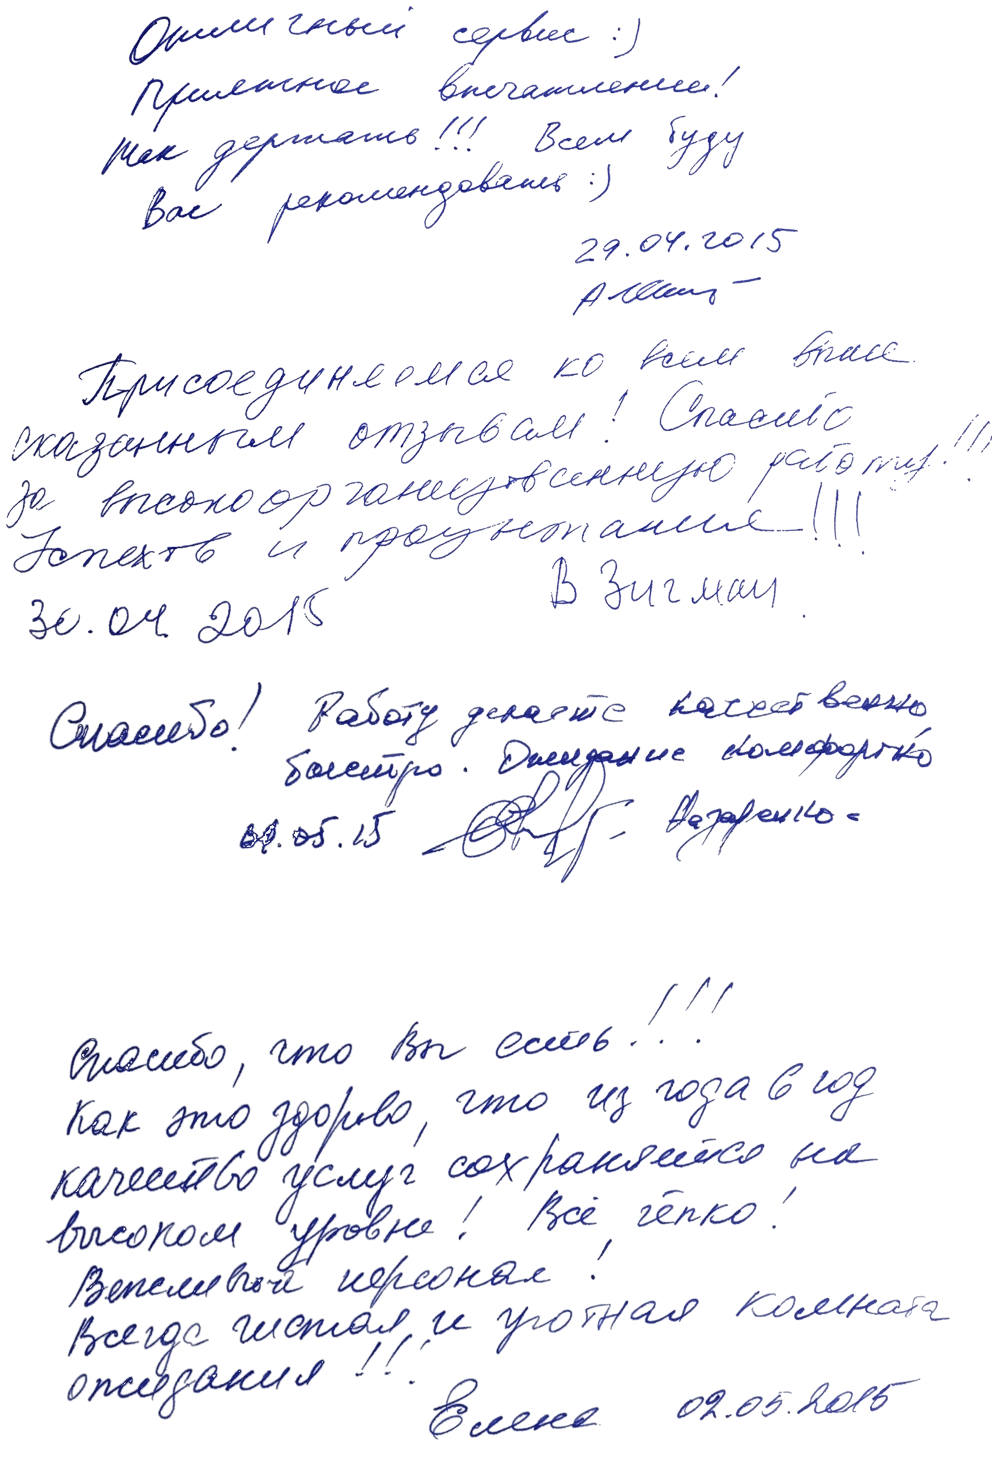 Отличный сервис :)
Приятное впечатление!
Так держать!!! Всем буду
Вас рекомендовать :)
29.04.2015
Присоединяемся ко всем выше
сказанным отзывам! Спасибо
за высокоорганизованную работу!!!
Успехов и процветания!!!
В Зигман
30.04.2015
Спасибо! Работу делаете качественно
быстро. Ожидание комфортно
05.15 Назаренко
Спасибо, что Вы есть!!!
Как это здорово, что из года в год
качество услуг сохраняется на
высоком уровне! Всё чётко!
Вежливый персонал!
Всегда чистая и уютная комната
ожидания!!!
Елена 02.05.2015